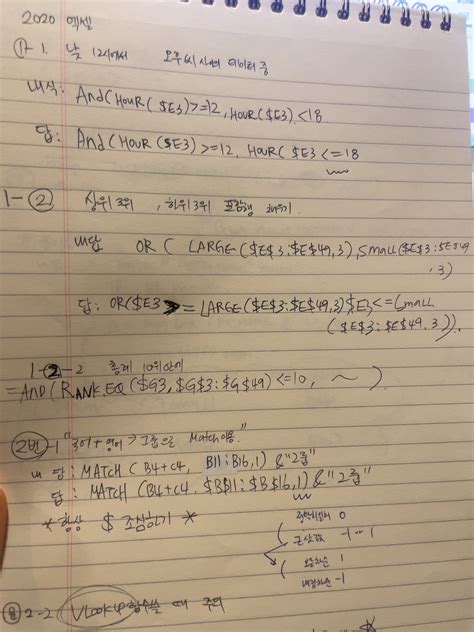 2020 엑셀
①-1. 낮 12시에서 오후 6시 사이 데이터 중
내식: And(HOUR($E3)>=12, HOUR($E3)<18
답: And(HOUR($E3)>=12, HOUR($E3<=18
1-② 상위3위, 하위3위 채우기
내답 OR(LARGE($E$3:$E$49,3),SMALL($E$3:$E$49
,3)
답: OR($E3>=LARGE($E$3:$E$49,3)$E3<=SMALL
($E$3:$E$49,3)).
1-2-2 총점 10위안에
=AND(RANK.EQ($G3,$G$3:$G$49)<=10, ~)
②번-1 "국어+영어>그룹으로 Match이용"
내답: MATCH(B4+C4, B11:B16,1)&"그룹"
답: MATCH(B4+C4,$B$11:$B$16,1)&"그룹"
*항상 $ 조심하기*
근삿값 -1 or 1
오름차순 1
내림차순 -1
2-2 VLOOKUP함수쓸 때 주의